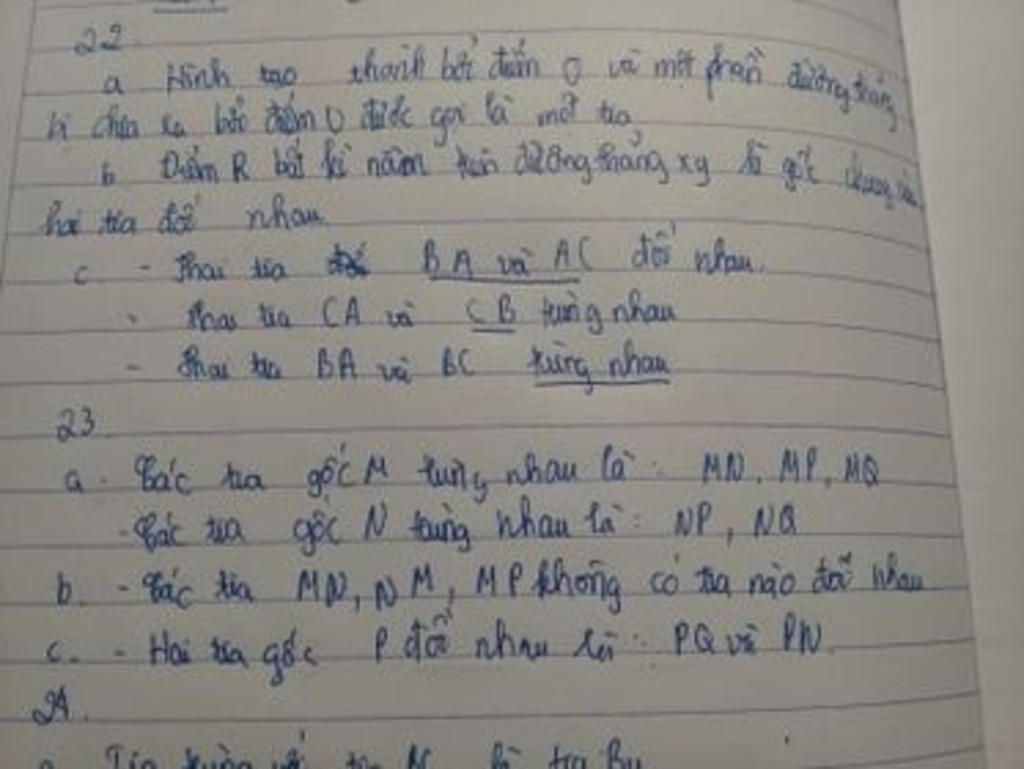 22
a Hình tạo thành bởi điểm O và một phần đường thẳng
bị chia ra bởi điểm O được gọi là một tia
b Điểm R bất kì nằm trên đường thẳng xy là gốc chung của
hai tia đối nhau
c - Hai tia BA và AC đối nhau.
- Hai tia CA và CB trùng nhau
- Hai tia BA và BC trùng nhau
23
a. Các tia gốc M trùng nhau là: MN, MP, MQ
- Các tia gốc N trùng nhau là: NP, NQ
b. - Các tia MN, NM, MP không có tia nào đối nhau
c. - Hai tia gốc P đối nhau là: PQ và PN
24.
a Tia trùng với tia BC là tia By